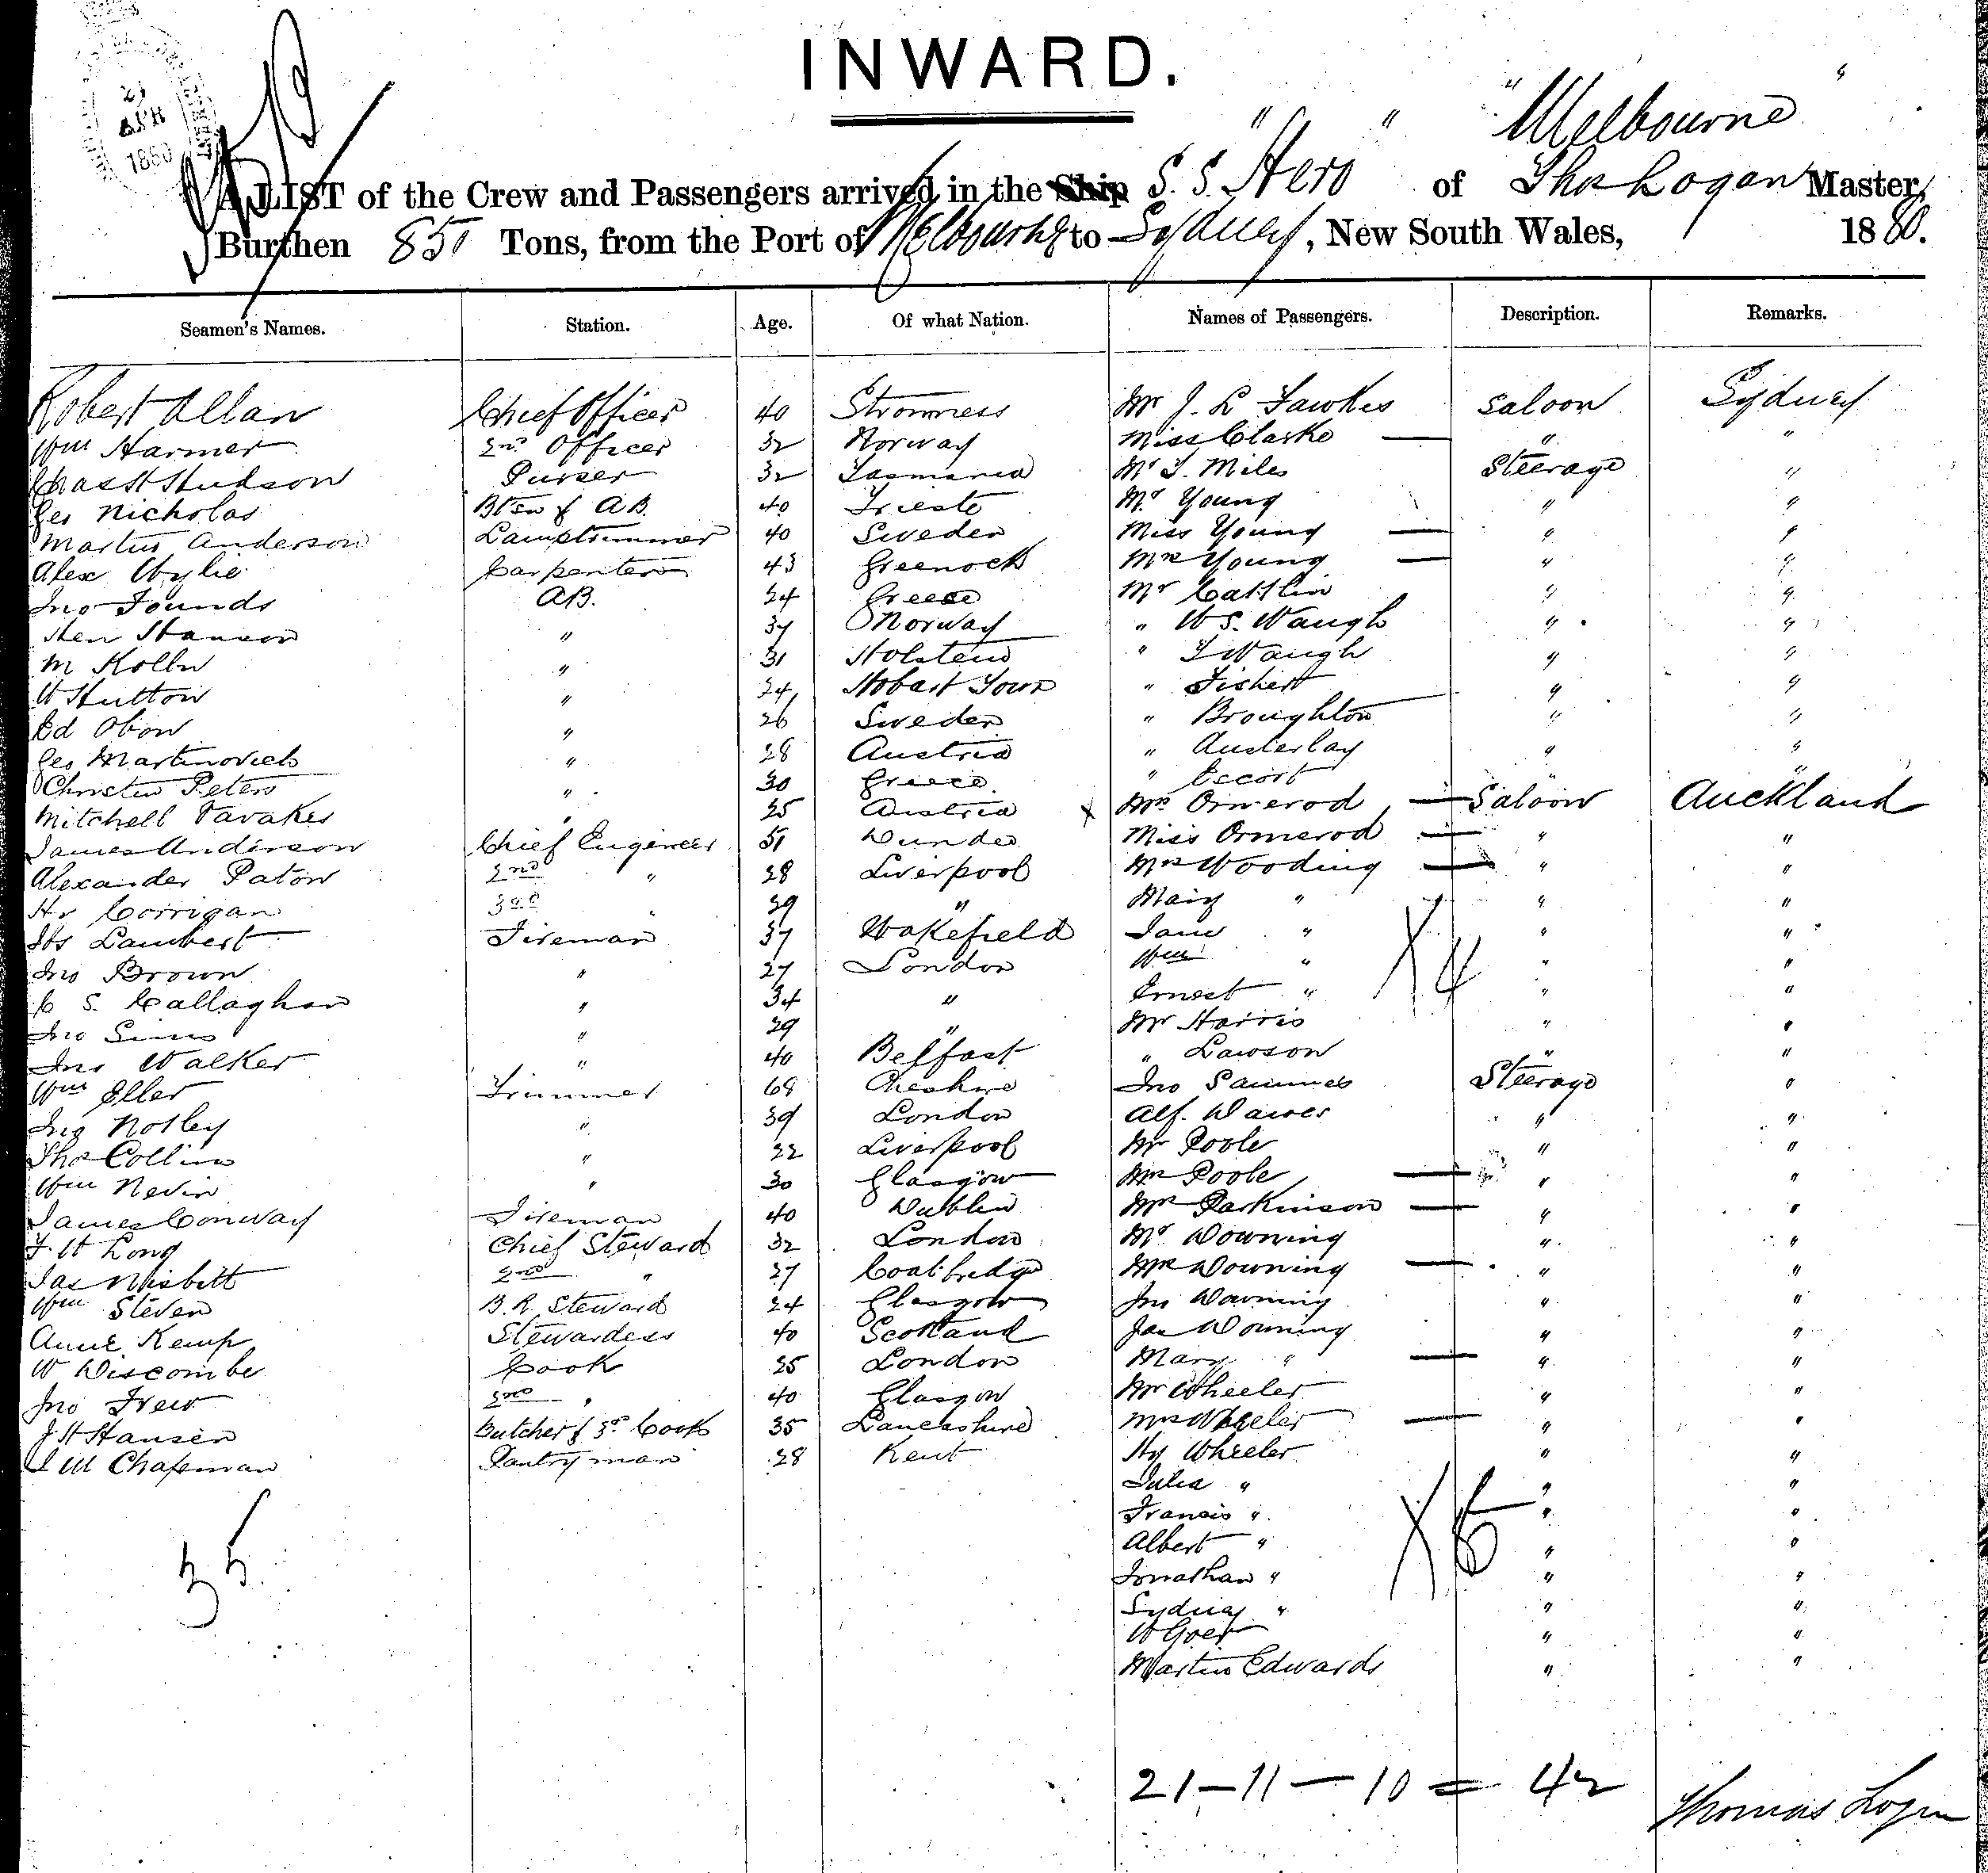 INWARD.
" " " Melbourne "
A LIST of the Crew and Passengers arrived in the Ship S.S. Hero of Thos Logan Master,
Burthen 850 Tons, from the Port of Melbourne to Sydney, New South Wales, 1880.
Seamen's Names. Station. Age. Of what Nation. Names of Passengers. Description. Remarks.
Robert Allan Chief Officer 40 Stromness Mr J. L Fawkes Saloon Sydney
Wm Harmer 2nd Officer 32 Norway Miss Clarke " "
Chas H Hudson Purser 32 Tasmania Mr J. Miles Steerage "
Geo Nicholas Btsn & AB. 40 Trieste Mr Young " "
Martin Anderson Lamptrimmer 40 Sweden Miss Young " "
Alex Wylie Carpenter 43 Greenock Mrs Young " "
Jno Founds AB. 24 Greece Mr Cattlin " "
Hen " 37 Norway " W S. Waugh " "
M Kolln " 31 Holstein " J Waugh " "
W Hutton " 24 Hobart Town " Fishert " "
Ed Obon " 26 Sweden " Broughton " "
Geo Martinovich " 28 Austria " Austerlay " "
Christin Peters " 30 Greece " Escort " "
Mitchell Tavakes " 25 Austria Mrs Ormerod Saloon Auckland
James Anderson Chief Engineer 51 Dundee Miss Ormerod " "
Alexander Paton 2nd " 28 Liverpool Mrs Wooding " "
Hr Corrigan 3rd " 29 " Mary " " "
Jos Lambert Fireman 37 Wakefield Jane " " "
Jno Brown " 27 London Wm " " "
C S. Callaghan " 34 " Ernest " " "
Jno Sims " 29 " Mr Harris " "
Jno Walker " 40 Belfast " Lawson " "
Wm Eller Trimmer 68 Cheshire Jno Sammes Steerage "
Jno Notley " 39 London Alf. Dawes " "
Tho Collins " 22 Liverpool Mr Poole " "
Wm Nevin " 30 Glasgow Mrs Poole " "
James Conway Fireman 40 Dublin Mrs Parkinson " "
F. W Long Chief Steward 32 London Mr Downing " "
Jas Nisbitt 2nd " 27 Coatbridge Mrs Downing " "
Wm Steven B.R. Steward 24 Glasgow Jno Downing " "
Anne Kemp Stewardess 40 Scotland Jas Downing " "
W Discombe Cook 25 London Mary " " "
Jno Frew 2nd " 40 Glasgow Mr Wheeler " "
J H Hansen Butcher & 3rd Cook 35 Lancashire Mrs Wheeler " "
J W Chapman Pantryman 28 Kent Hy Wheeler " "
Julia " " "
Francis " " "
Albert " " "
Jonathan " " "
Sydney " " "
W Goer " "
Martin Edwards " "
35
21 – 11 – 10 = 42
Thomas Logan